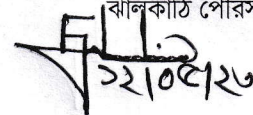 ঝালকাঠি পৌরস
১২/০৫/২৬